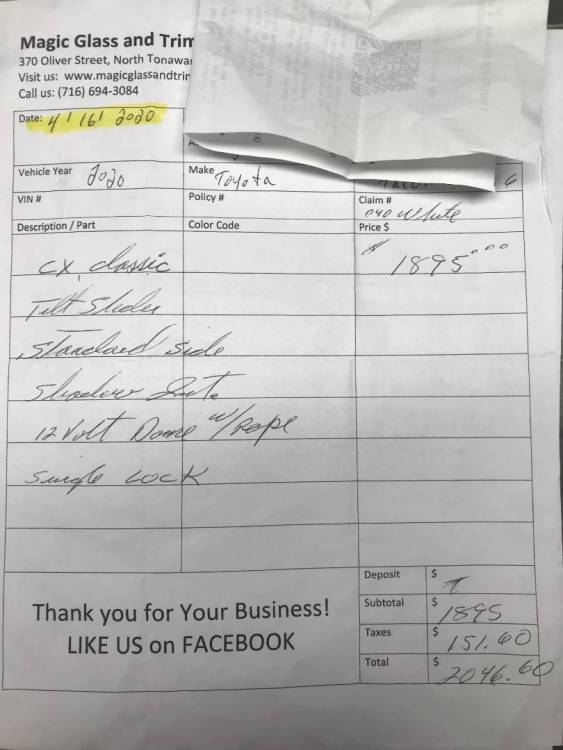 Magic Glass and Trim
370 Oliver Street, North Tonawa
Visit us: www.magicglassandtrim
Call us: (716) 694-3084
Date: 4/16/2020
Vehicle Year 2020 Make Toyota 6
VIN # Policy # Claim #
040 White
Description / Part Color Code Price $
CX classic $ 1895.00
Tilt Slider
Standard side
12 Volt Dome w/Rope
Single LOCK
Deposit $
Subtotal $ 1895
Taxes $ 151.60
Total $ 2046.60
Thank you for Your Business!
LIKE US on FACEBOOK